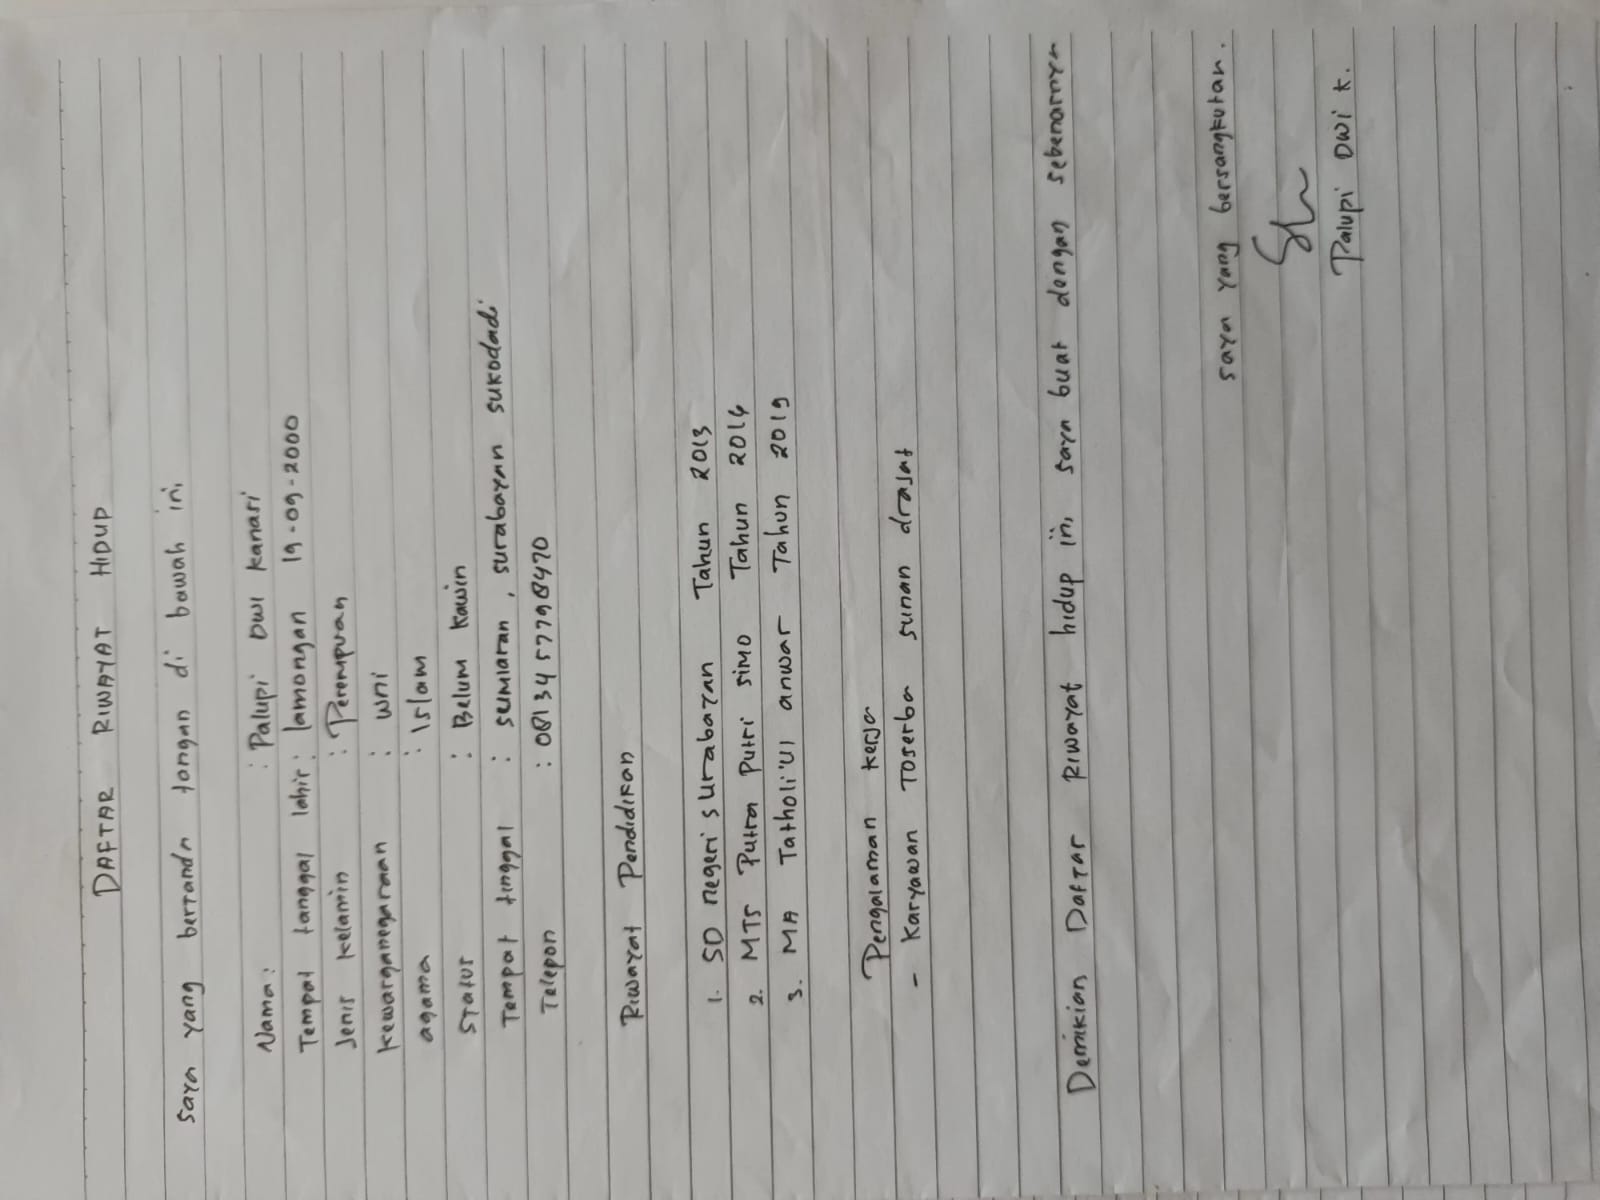 DAFTAR RIWAYAT HIDUP
saya yang bertanda tangan di bawah ini
Nama : : Palupi DWI Kanasi
Tempat tanggal lahir : lamongan 19-09-2000
Jenis Kelamin : Perempuan
kewarganegaraan : wni
agama : Islam
STATUS : Belum Kawin
Tempat tinggal : sumlaran , surabayan sukodadi
Telepon : 0813457798470
Riwayat Pendidikan
1. SD negeri surabayan Tahun 2013
2. MTS Putra Putri SIMO Tahun 2016
3. MA Tatholi'ul anwar Tahun 2019
Pengalaman kerja
- Karyawan Toserba sunan drajat
Demikian Daftar Riwayat hidup ini saya buat dengan sebenarnya
saya yang bersangkutan.
Palupi DWi K.